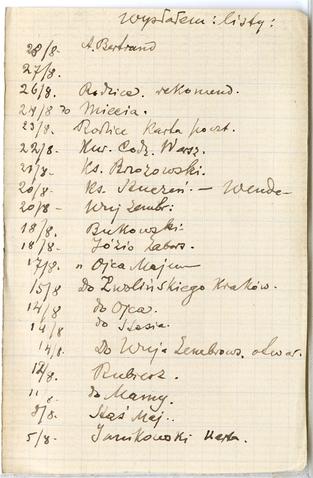 wysłałem: listy:
28/8- A. Bertrand
27/8.
26/8. Rodzice. rekomend.
24/8 do Miecia.
23/8. Rodzice Karta poczt.
22/8- Kur. Codz. Warsz.
21/8- Ks. Brozowski.
20/8- Ks. —
20/8- Wuj Zembr:
18/8. Butkowski:
18/8- Józio Zabrz.
17/8. " Ojca Majem
15/8 do Zwolińskiego Kraków.
14/8 do Ojca.
14/8 do Stasia.
14/8- Do Wuja Zembrows. otwar.
12/8. Rubierz.
11 8. do Mamy.
8/8- Staś Maj..
5/8- Janikowski Karta.